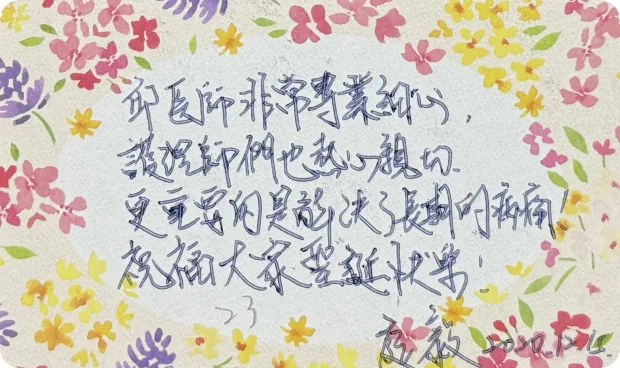 邱醫師非常專業細心，
護理師們也熱心親切.
更重要的是解決了長期的病痛！
祝福大家聖誕快樂！
23
敏 2020.12.